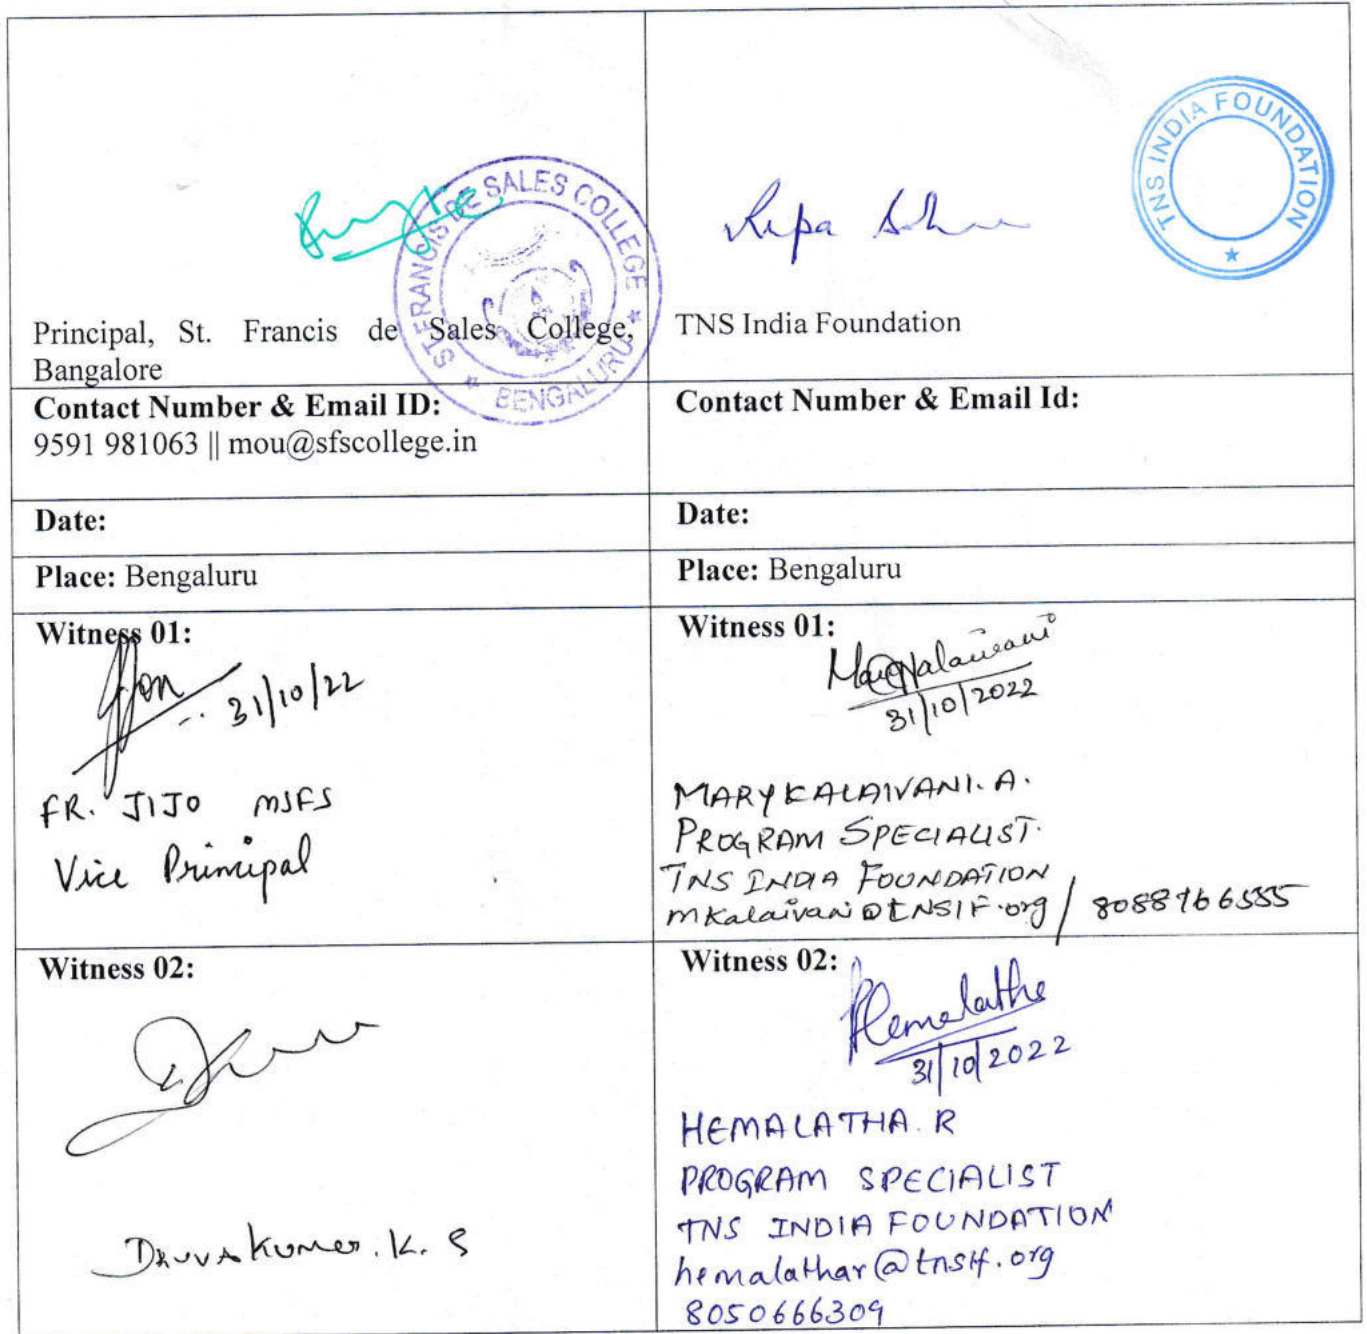 ST FRANCIS DE SALES COLLEGE
BENGALURU
Principal, St. Francis de Sales College,
Bangalore
TNS INDIA FOUNDATION
Rupa
TNS India Foundation
Contact Number & Email ID:
9591 981063 || mou@sfscollege.in
Contact Number & Email Id:
Date:
Date:
Place: Bengaluru
Place: Bengaluru
Witness 01:
31/10/22
FR. JIJO MSFS
Vice Principal
Witness 01:
31/10/2022
MARY KALAIVANI. A.
PROGRAM SPECIALIST.
TNS INDIA FOUNDATION
mkalaivani@TNSIF.org / 8088966555
Witness 02:
K. S
Witness 02:
Hemalatha
31/10/2022
HEMALATHA. R
PROGRAM SPECIALIST
TNS INDIA FOUNDATION
hemalathar@tnsif.org
8050666309